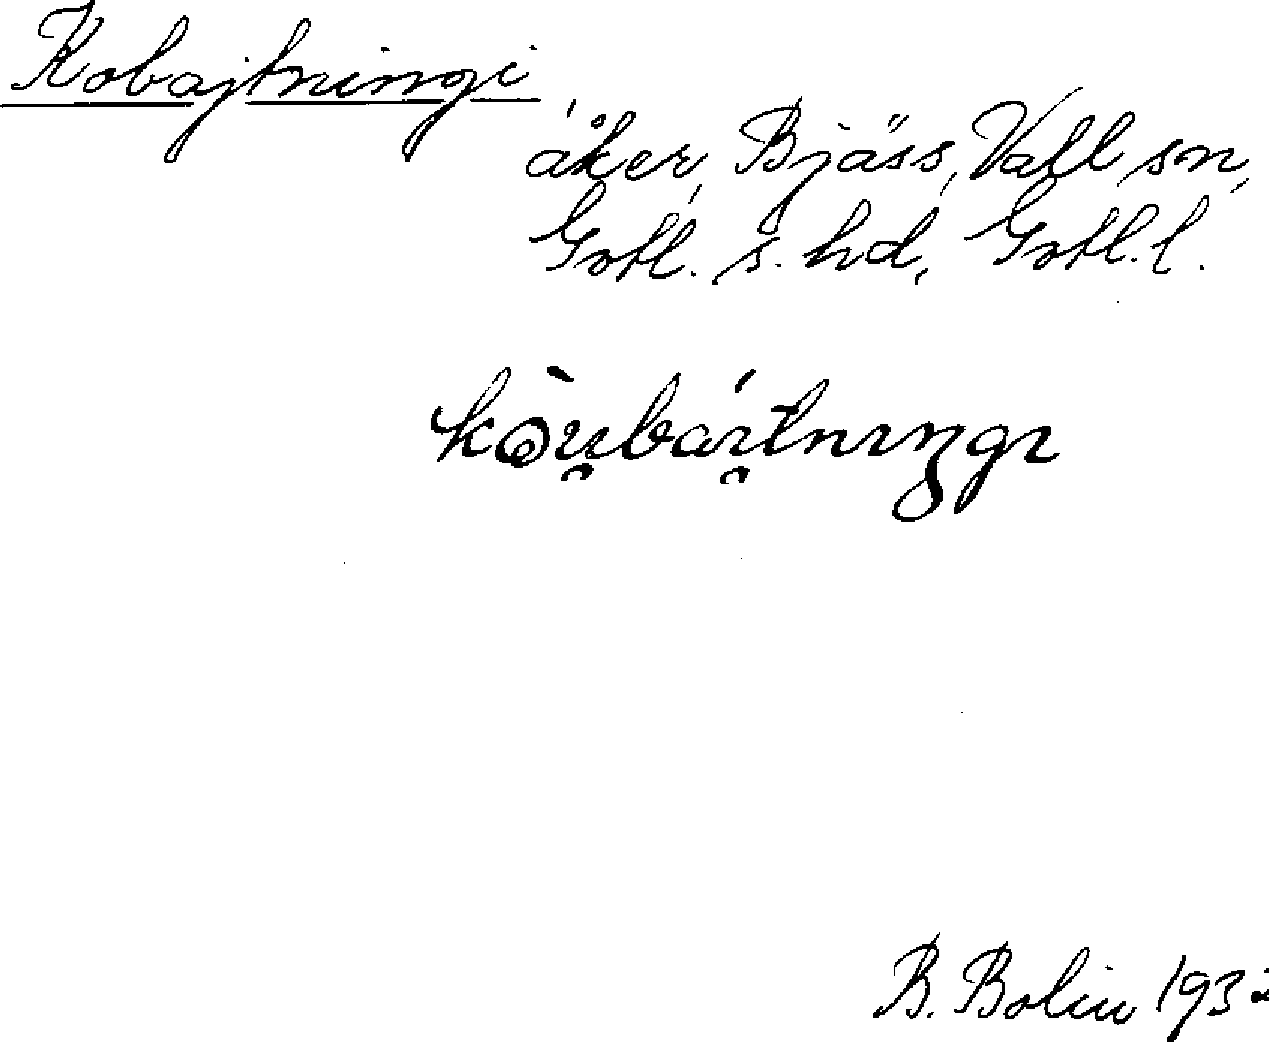 Kobajtningi,
åker, Bjäss, Vall sn,
Gotl. s. hd, Gotl. l.
kòu̯bái̯tnıŋgı
B. Bolin 1932